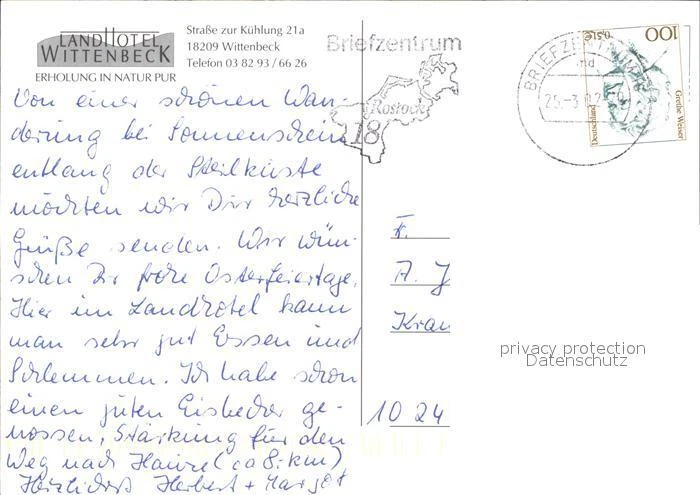 LANDHOTEL
WITTENBECK
ERHOLUNG IN NATUR PUR
Straße zur Kühlung 21a
18209 Wittenbeck
Telefon 03 82 93 / 66 26
Briefzentrum
Rostock
18
BRIEFZENTRUM
25.-3.02
100
0,51€
Grethe Weiser
Deutschland
Von einer schönen Wan-
derung bei Sonnenschein
entlang der Steilküste
möchten wir Dir herzliche
Grüße senden. Wir wün-
schen Dir frohe Osterfeiertage.
Hier im Landhotel kann
man sehr gut Essen und
Schlemmen. Ich habe schon
einen guten Eisbecher ge-
nossen, Stärkung für den
Weg nach Hause (ca 8 km)
Herbert + Margot
F.
A. J
Kran
10 24
privacy protection
Datenschutz